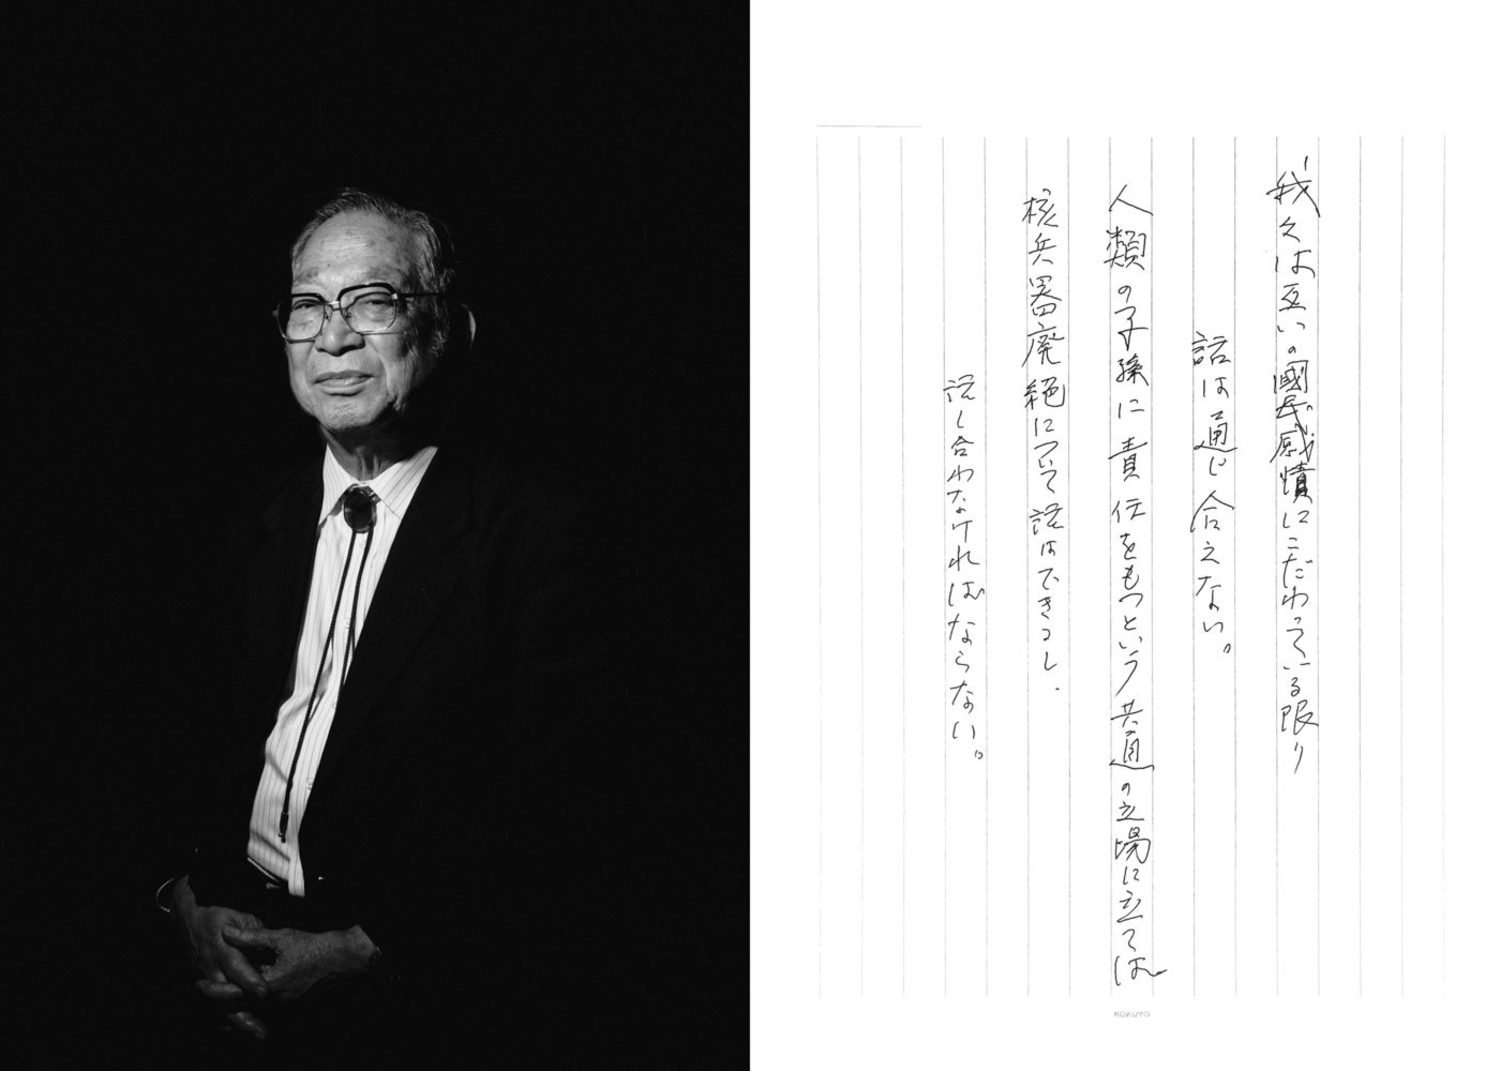 我々は互いの國民感情にこだわっている限り
話は通じ合えない。
人類の子孫に責任をもつという共通の立場に立てば
核兵器廃絶について話はできるし、
話し合わなければならない。
KOKUYO